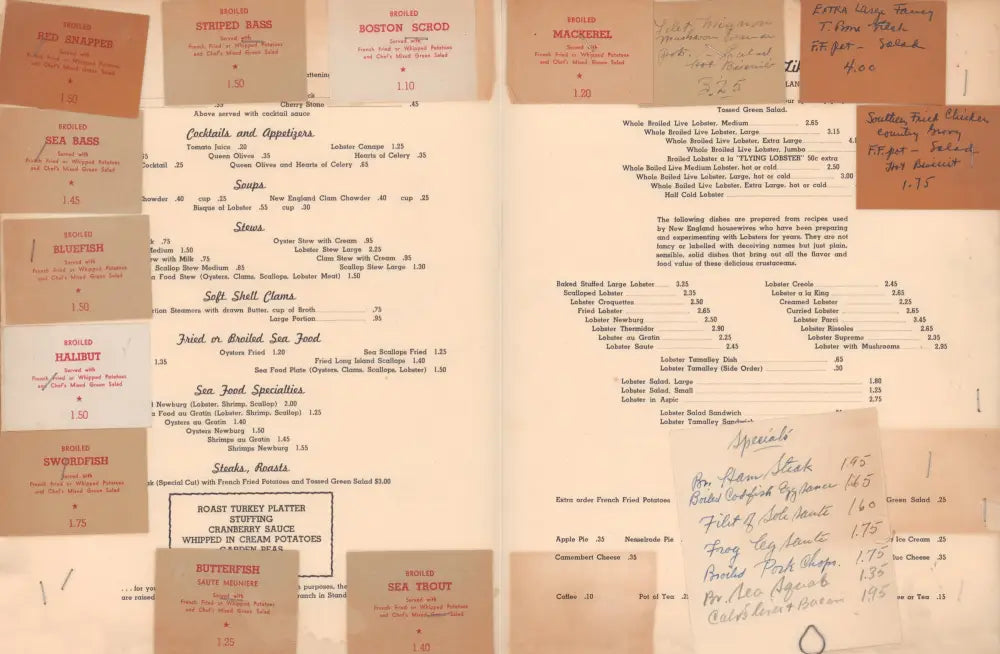 BROILED
RED SNAPPER
Served with
French Fried or Whipped Potatoes
and Chef's Mixed Green Salad
1.50
BROILED
STRIPED BASS
Served with
French Fried or Whipped Potatoes
and Chef's Mixed Green Salad
1.50
BROILED
BOSTON SCROD
Served with
French Fried or Whipped Potatoes
and Chef's Mixed Green Salad
1.10
BROILED
SEA BASS
Served with
French Fried or Whipped Potatoes
and Chef's Mixed Green Salad
1.45
BROILED
BLUEFISH
Served with
French Fried or Whipped Potatoes
and Chef's Mixed Green Salad
1.50
BROILED
HALIBUT
Served with
French Fried or Whipped Potatoes
and Chef's Mixed Green Salad
1.50
BROILED
SWORDFISH
Served with
French Fried or Whipped Potatoes
and Chef's Mixed Green Salad
1.75
Cherry Stone .45
Above served with cocktail sauce
Cocktails and Appetizers
Tomato Juice .20 Lobster Canape 1.25
Queen Olives .35 Hearts of Celery .35
Cocktail .25 Queen Olives and Hearts of Celery .65
Soups
.40 cup .25 New England Clam Chowder .40 cup .25
Bisque of Lobster .55 cup .30
Stews
.75 Oyster Stew with Cream .95
1.50 Lobster Stew Large 2.25
with Milk .75 Clam Stew with Cream .95
Scallop Stew Medium .85 Scallop Stew Large 1.30
Food Stew (Oysters, Clams, Scallops, Lobster Meat) 1.50
Soft Shell Clams
Steamers with drawn Butter, cup of Broth .75
Large Portion .95
Fried or Broiled Sea Food
Oysters Fried 1.20 Sea Scallops Fried 1.25
1.35 Fried Long Island Scallops 1.40
Sea Food Plate (Oysters, Clams, Scallops, Lobster) 1.50
Sea Food Specialties
Newburg (Lobster, Shrimp, Scallop) 2.00
Food au Gratin (Lobster, Shrimp, Scallop) 1.25
Oysters au Gratin 1.40
Oysters Newburg 1.50
Shrimps au Gratin 1.45
Shrimps Newburg 1.55
Steaks, Roasts
(Special Cut) with French Fried Potatoes and Tossed Green Salad $3.00
ROAST TURKEY PLATTER
STUFFING
CRANBERRY SAUCE
WHIPPED IN CREAM POTATOES
GARDEN PEAS
... for
are raised
purposes, the
BUTTERFISH
SAUTE MEUNIERE
Served with
French Fried or Whipped Potatoes
and Chef's Mixed Green Salad
1.25
BROILED
SEA TROUT
Served with
French Fried or Whipped Potatoes
and Chef's Mixed Green Salad
1.40
BROILED
MACKEREL
Served with
French Fried or Whipped Potatoes
and Chef's Mixed Green Salad
1.20
Filet Mignon
Salad
Hot Biscuit
3.25
EXTRA Large Fancy
T. Bone Steak
F.F. pot - Salad
4.00
Southern Fried Chicken
Country Gravy
F.F. pot - Salad
Hot Biscuit
1.75
Tossed Green Salad.
Whole Broiled Live Lobster, Medium 2.65
Whole Broiled Live Lobster, Large 3.15
Whole Broiled Live Lobster, Extra Large
Whole Broiled Live Lobster, Jumbo
Broiled Lobster a la "FLYING LOBSTER" 50c extra
Whole Boiled Live Medium Lobster, hot or cold 2.50
Whole Boiled Live Lobster, Large, hot or cold 3.00
Whole Boiled Live Lobster, Extra Large, hot or cold
Half Cold Lobster
The following dishes are prepared from recipes used
by New England housewives who have been preparing
and experimenting with Lobsters for years. They are not
fancy or labelled with deceiving names but just plain,
sensible, solid dishes that bring out all the flavor and
food value of these delicious crustaceans.
Baked Stuffed Large Lobster 3.25 Lobster Creole 2.45
Scalloped Lobster 2.35 Lobster a la King 2.65
Lobster Croquettes 2.50 Creamed Lobster 2.25
Fried Lobster 2.65 Curried Lobster 2.65
Lobster Newburg 2.50 Lobster Parci 3.45
Lobster Thermidor 2.90 Lobster Rissoles 2.65
Lobster au Gratin 2.25 Lobster Supreme 2.35
Lobster Saute 2.45 Lobster with Mushrooms 2.95
Lobster Tamalley Dish .65
Lobster Tamalley (Side Order) .30
Lobster Salad, Large 1.80
Lobster Salad, Small 1.25
Lobster in Aspic 2.75
Lobster Salad Sandwich
Lobster Tamalley Sandwich
Specials
Br. Ham Steak 1.95
Boiled Codfish Egg sauce 1.65
Filet of Sole saute 1.60
Frog Leg saute 1.75
Broiled Pork Chops. 1.75
Br. Sea Squab 1.35
Calvs liver & Bacon 1.95
Extra order French Fried Potatoes Green Salad .25
Apple Pie .35 Nesselrode Pie Ice Cream .25
Camembert Cheese .35 Cheese .35
Coffee .10 Pot of Tea or Tea .15